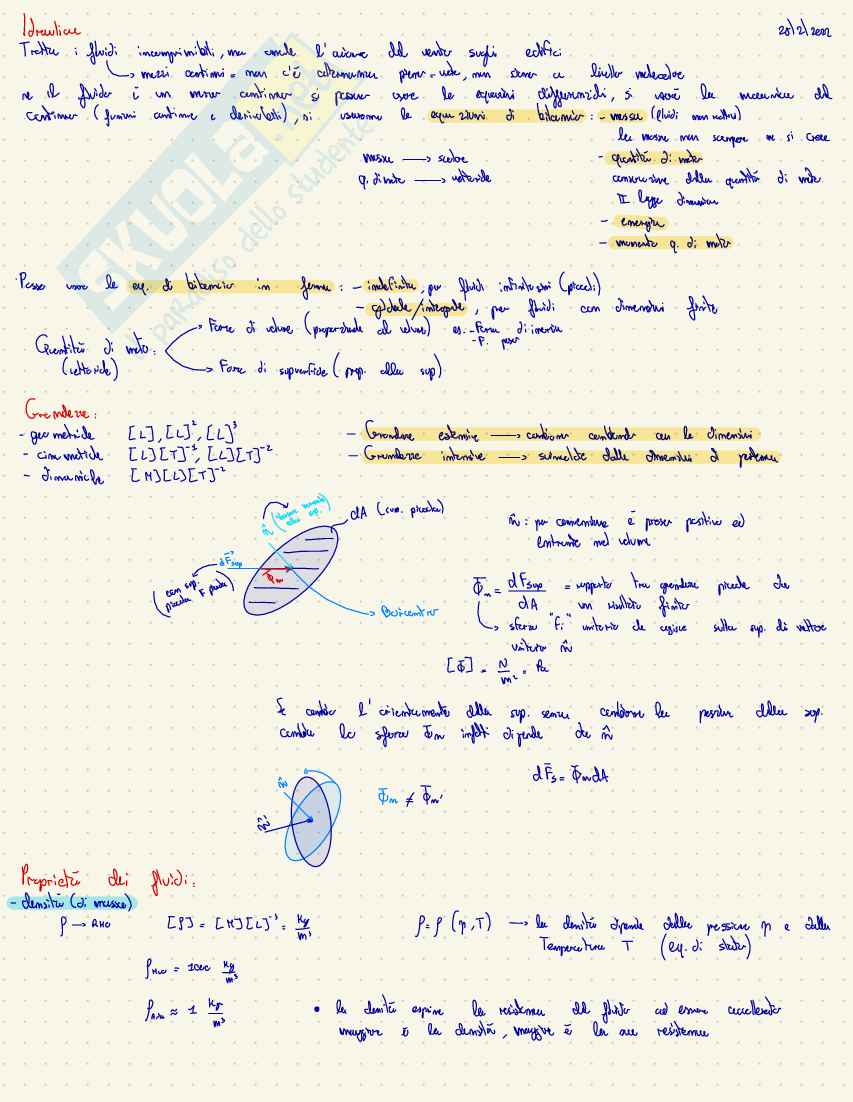 Idraulica 28/2/2022
Tratta i fluidi incomprimibili, ma anche l'azione del vento sugli edifici
mezzi continui = non c'è alternanza pieno-vuoto, non siamo a livello molecolare
se il fluido è un mezzo continuo si posson usare le equazioni differenziali, si userà la meccanica del
continuo (funzioni continue e derivabili), si useranno le equazioni di bilancio: - massa (fluidi non reattivi)
la massa non scompare ne si crea
massa → scalare - quantità di moto
q. di moto → vettoriale conservazione della quantità di moto
II legge dinamica
- energia
- momento q. di moto
Posso usare le eq. di bilancio in forma: - indefinita, per fluidi infinitesimi (piccoli)
- globale/integrale, per fluidi con dimensioni finite
Forze di volume (proporzionale al volume) es. - Forza di inerzia
- F. peso
Quantità di moto:
(vettoriale)
Forze di superficie (prop. alla sup)
Grandezze:
- geometriche [L], [L]², [L]³ - Grandezze estensive → cambiano cambiando le dimensioni
- cinematiche [L][T]⁻¹, [L][T]⁻² - Grandezze intensive → svincolate dalle dimensioni di partenza
- dinamiche [M][L][T]⁻²
n̂ (versore normale alla sup.) dA (sup. piccola)
n̂: per convenzione è preso positivo ed
entrante nel volume
dF⃗sup
(con sup. piccola F piccola)
Φ̄n
Baricentro
Φ̄n = dFsup / dA = rapporto tra grandezze piccole da
un risultato finito
sforzo "fi" unitario che agisce sulla sup. di vettore
unitario n̂
[Φ] = N/m² = Pa
Se cambio l'orientamento della sup. senza cambiare la posizione della sup.
cambia lo sforzo Φ̄n infatti dipende da n̂
dF̄s = Φ̄n dA
n̂ Φ̄n ≠ Φ̄n'
n̂'
Proprietà dei fluidi:
- densità (di massa)
ρ → RHO [ρ] = [M][L]⁻³ = kg/m³ ρ = ρ (p, T) → la densità dipende dalla pressione p e dalla
Temperatura T (eq. di stato)
ρH₂O = 1000 kg/m³
ρAria ≈ 1 kg/m³ • la densità esprime la resistenza del fluido ad essere accelerato
maggiore è la densità, maggiore è la sua resistenza
SKUOLA.net
paradiso dello studente